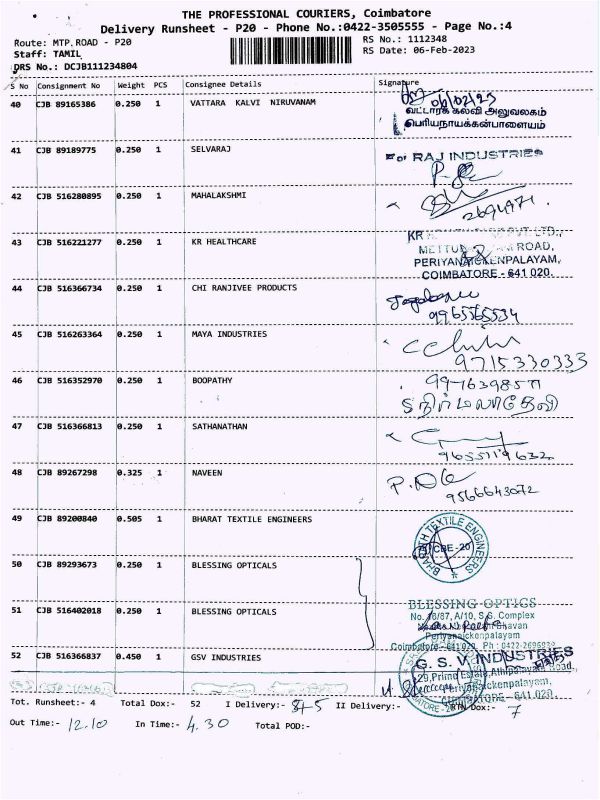 THE PROFESSIONAL COURIERS, Coimbatore
Delivery Runsheet - P20 - Phone No.:0422-3505555 - Page No.:4
Route: MTP.ROAD - P20
RS No.: 1112348
Staff: TAMIL
RS Date: 06-Feb-2023
DRS No.: DCJB111234804
S No Consignment No Weight PCS Consignee Details Signature
40 CJB 89165386 0.250 1 VATTARA KALVI NIRUVANAM
06/02/23
வட்டாரக் கல்வி அலுவலகம்
பெரியநாயக்கன்பாளையம்
41 CJB 89189775 0.250 1 SELVARAJ
For RAJ INDUSTRIES
42 CJB 516280895 0.250 1 MAHALAKSHMI
43 CJB 516221277 0.250 1 KR HEALTHCARE
KR PVT LTD.,
ROAD,
PERIYANAICKENPALAYAM,
COIMBATORE - 641 020.
44 CJB 516366734 0.250 1 CHI RANJIVEE PRODUCTS
9965565534
45 CJB 516263364 0.250 1 MAYA INDUSTRIES
9715330333
46 CJB 516352970 0.250 1 BOOPATHY
நிர்மலாதேவி
47 CJB 516366813 0.250 1 SATHANATHAN
9655119632
48 CJB 89267298 0.325 1 NAVEEN
9566643072
49 CJB 89200840 0.505 1 BHARAT TEXTILE ENGINEERS
BHARATH TEXTILE ENGINEERS
CBE-20
50 CJB 89293673 0.250 1 BLESSING OPTICALS
51 CJB 516402018 0.250 1 BLESSING OPTICALS
BLESSING OPTICS
No. 16/87, A/10, S.G. Complex
Bhavan
Periyanaickenpalayam
Coimbatore - 641 020. Ph : 0422-2696939
52 CJB 516366837 0.450 1 GSV INDUSTRIES
G. S. V. INDUSTRIES
29, Primo Estate, Athipalayam Road,
Periyanaickenpalayam,
COIMBATORE - 641 020.
Tot. Runsheet:- 4 Total Dox:- 52 I Delivery:- 45 II Delivery:- RTN Dox:- 7
Out Time:- 12.10 In Time:- 4.30 Total POD:-